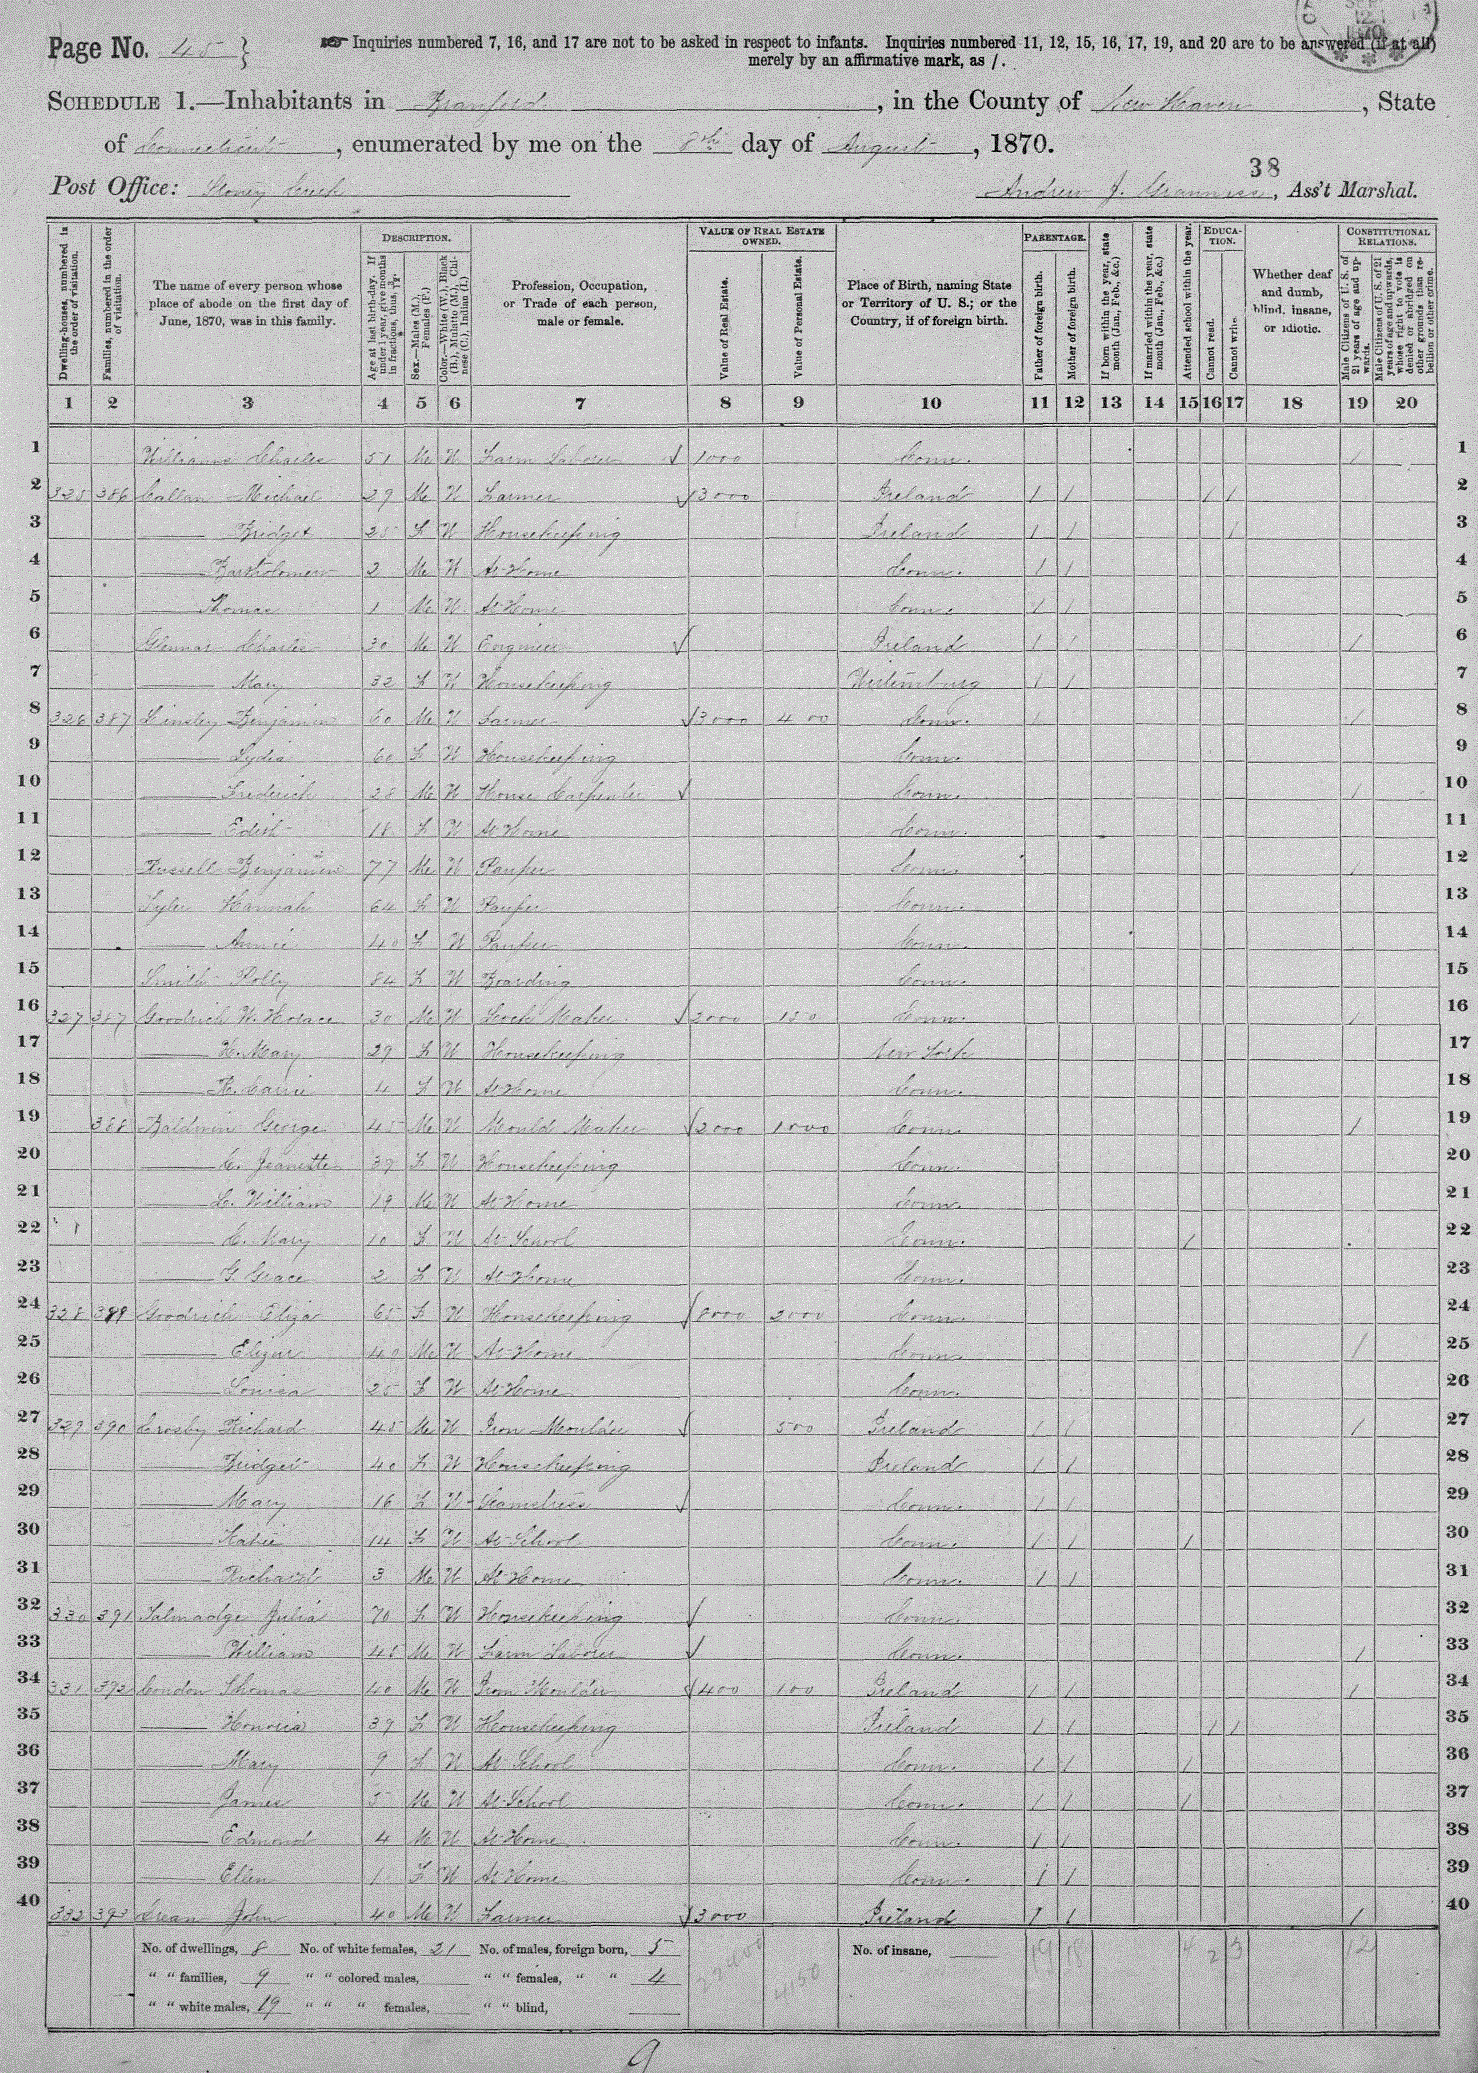 Page No. 45
Inquiries numbered 7, 16, and 17 are not to be asked in respect to infants. Inquiries numbered 11, 12, 15, 16, 17, 19, and 20 are to be answered (if at all)
merely by an affirmative mark, as /.
SCHEDULE 1.—Inhabitants in Branford, in the County of New Haven, State
of Connecticut, enumerated by me on the 8th day of August, 1870.
38
Post Office: Stoney Creek
Andrew J., Ass't Marshal.
Dwelling-houses, numbered in the order of visitation.
Families, numbered in the order of visitation.
The name of every person whose place of abode on the first day of June, 1870, was in this family.
DESCRIPTION.
Age at last birth-day. If under 1 year, give months in fractions, thus,
Sex.—Males (M.), Females (F.)
Color.—White (W.), Black (B.), Mulatto (M.), Chinese (C.), Indian (I.)
Profession, Occupation, or Trade of each person, male or female.
VALUE OF REAL ESTATE OWNED.
Value of Real Estate.
Value of Personal Estate.
Place of Birth, naming State or Territory of U. S.; or the Country, if of foreign birth.
PARENTAGE.
Father of foreign birth.
Mother of foreign birth.
If born within the year, state month (Jan., Feb., &c.)
If married within the year, state month (Jan., Feb., &c.)
Attended school within the year.
EDUCATION.
Cannot read.
Cannot write.
Whether deaf and dumb, blind, insane, or idiotic.
CONSTITUTIONAL RELATIONS.
Male Citizens of U. S. of 21 years of age and upwards.
Male Citizens of U. S. of 21 years of age and upwards, whose right to vote is denied or abridged on other grounds than rebellion or other crime.
1 2 3 4 5 6 7 8 9 10 11 12 13 14 15 16 17 18 19 20
1 Williams Charles 51 M W Farm Laborer 1000 Conn. / 1
2 325 386 Callan Michael 29 M W Farmer 3000 Ireland / / / / 2
3 Bridget 25 F W Housekeeping Ireland / / / 3
4 Bartholomew 2 M W At Home Conn. / / 4
5 Thomas 1 M W At Home Conn. / / 5
6 Charles 30 M W Engineer Ireland / / / 6
7 Mary 32 F W Housekeeping / / 7
8 326 387 Linsley Benjamin 60 M W Farmer 3000 400 Conn. / / 8
9 Lydia 60 F W Housekeeping Conn. 9
10 Frederick 28 M W House Carpenter Conn. / 10
11 Edith 18 F W At Home Conn. 11
12 Russell Benjamin 77 M W Pauper Conn. / 12
13 Tyler Hannah 64 F W Pauper Conn. 13
14 Annie 40 F W Pauper Conn. 14
15 Smith Polly 84 F W Boarding Conn. 15
16 327 387 Goodrich W. Horace 30 M W Lock Maker 2000 150 Conn. / 16
17 H. Mary 29 F W Housekeeping New York 17
18 Carrie 4 F W At Home Conn. 18
19 388 Baldwin George 45 M W Mould Maker 2000 1000 Conn. / 19
20 C. Jeanette 39 F W Housekeeping Conn. 20
21 C. William 19 M W At Home Conn. 21
22 C. Mary 10 F W At School Conn. / 22
23 G. Grace 2 F W At Home Conn. 23
24 328 389 Goodrich Eliza 65 F W Housekeeping 8000 2000 Conn. 24
25 Elizur 40 M W At Home Conn. / 25
26 Louisa 25 F W At Home Conn. 26
27 329 390 Crosby Richard 45 M W Iron Moulder 500 Ireland / / / 27
28 Bridget 40 F W Housekeeping Ireland / / 28
29 Mary 16 F W Seamstress Conn. / / 29
30 Katie 14 F W At School Conn. / / / 30
31 Richard 3 M W At Home Conn. / / 31
32 330 391 Talmadge Julia 70 F W Housekeeping Conn. 32
33 William 45 M W Farm Laborer Conn. / 33
34 331 392 Condon Thomas 40 M W Iron Moulder 1400 100 Ireland / / / 34
35 Honora 39 F W Housekeeping Ireland / / / / 35
36 Mary 9 F W At School Conn. / / / 36
37 James 5 M W At School Conn. / / / 37
38 Edmond 4 M W At Home Conn. / / 38
39 Ellen 1 F W At Home Conn. / / 39
40 332 393 John 40 M W Farmer 3000 Ireland / / / 40
No. of dwellings, 8 No. of white females, 21 No. of males, foreign born, 5 No. of insane,
" " families, 9 " " colored males, " " females, " " 4
" " white males, 19 " " " females, " " blind,
4150
19 18 4 2 3 12
9